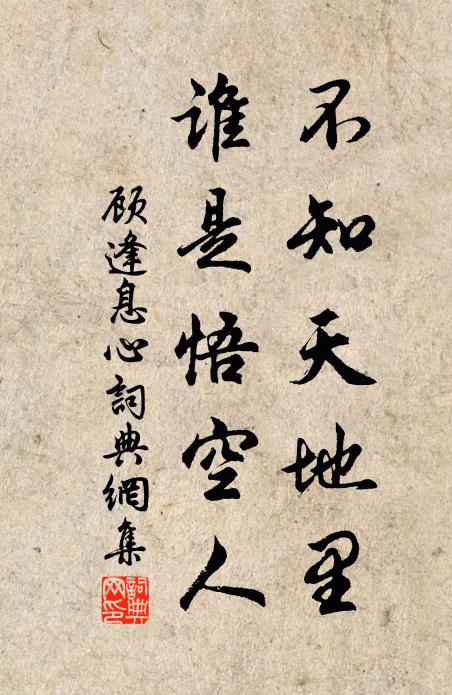 不知天地里
谁是悟空人
顾逢息心詞典網集
詞典網印